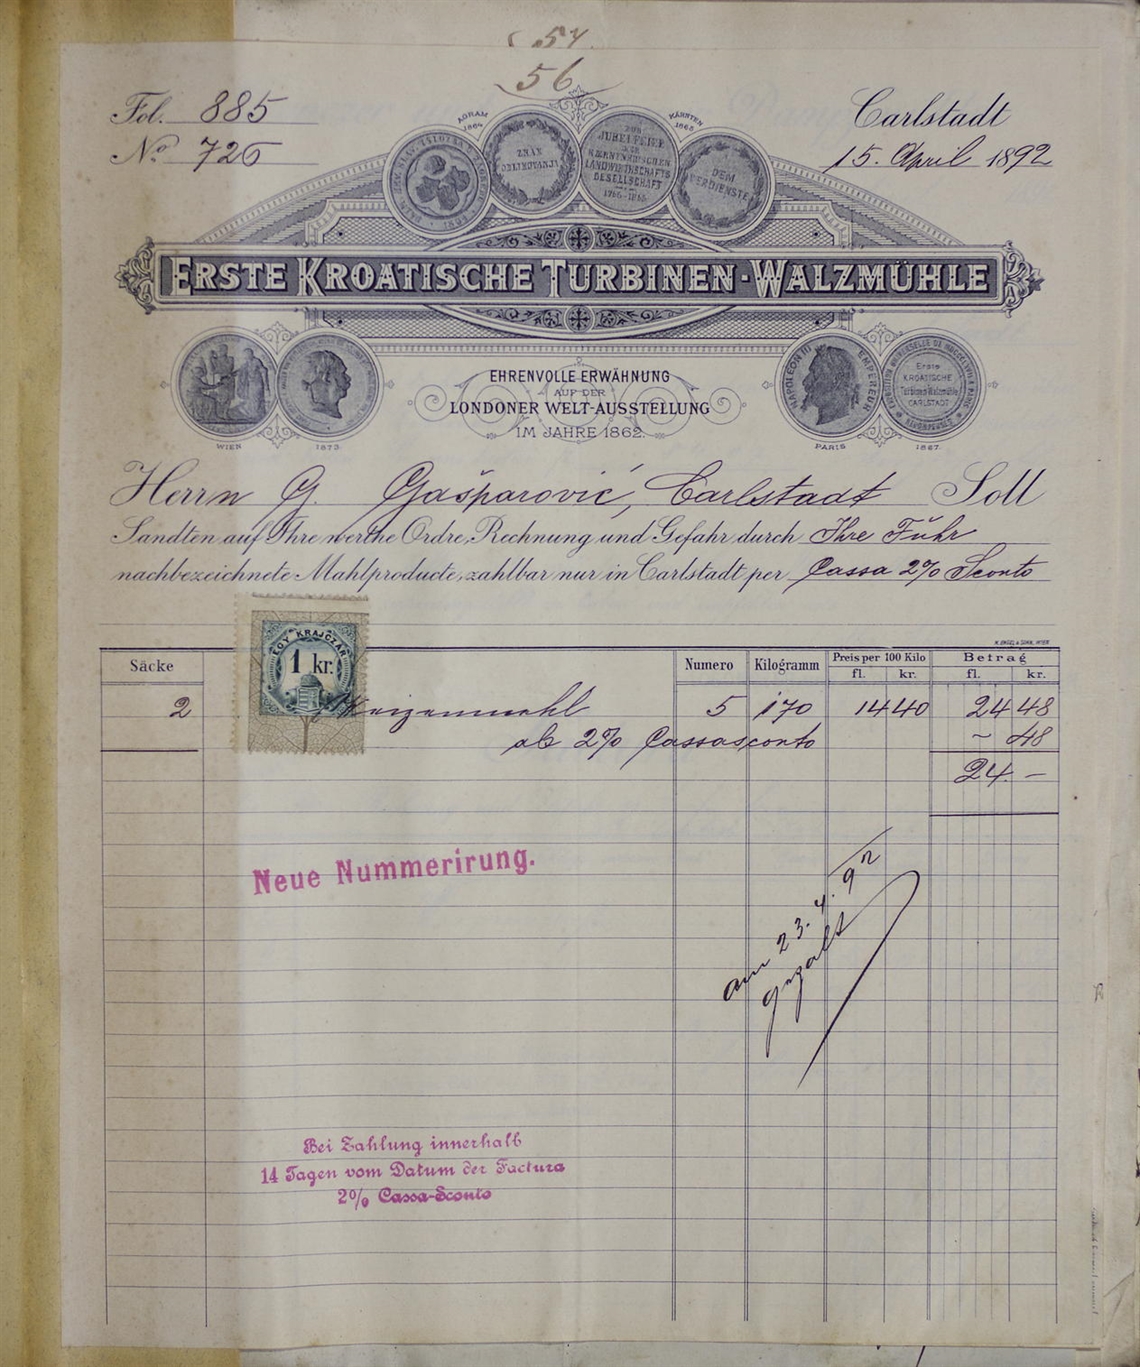 54.
56
Fol. 885
No 726
Carlstadt
15. April 1892
AGRAM 1864
KÄRNTEN 1865
ZNAK ODLIKOVANJA
ZUR JUBELFEIER DER KAERNTNERISCHEN LANDWIRTHSCHAFTS GESELLSCHAFT 1765-1865
DEM VERDIENSTE
ERSTE KROATISCHE TURBINEN-WALZMÜHLE
WIEN 1873.
EHRENVOLLE ERWÄHNUNG
AUF DER
LONDONER WELT-AUSSTELLUNG
IM JAHRE 1862.
NAPOLEON III EMPEREUR
Erste KROATISCHE Turbinen-Walzmühle CARLSTADT
PARIS 1867.
Herrn G. Gašparović, Carlstadt Soll
Sandten auf Ihre werthe Ordre, Rechnung und Gefahr durch Ihre Fuhr
nachbezeichnete Mahlproducte, zahlbar nur in Carlstadt per Cassa 2% Sconto
Säcke Numero Kilogramm Preis per 100 Kilo Betrag
fl. kr. fl. kr.
EGY KRAJCZÁR
1 kr.
2 Weizenmehl 5 170 14 40 24 48
ab 2% Cassasconto ~ 48
24 -
Neue Nummerirung.
am 23. 4. 92
gezalt
Bei Zahlung innerhalb
14 Tagen vom Datum der Factura
2% Cassa-Sconto